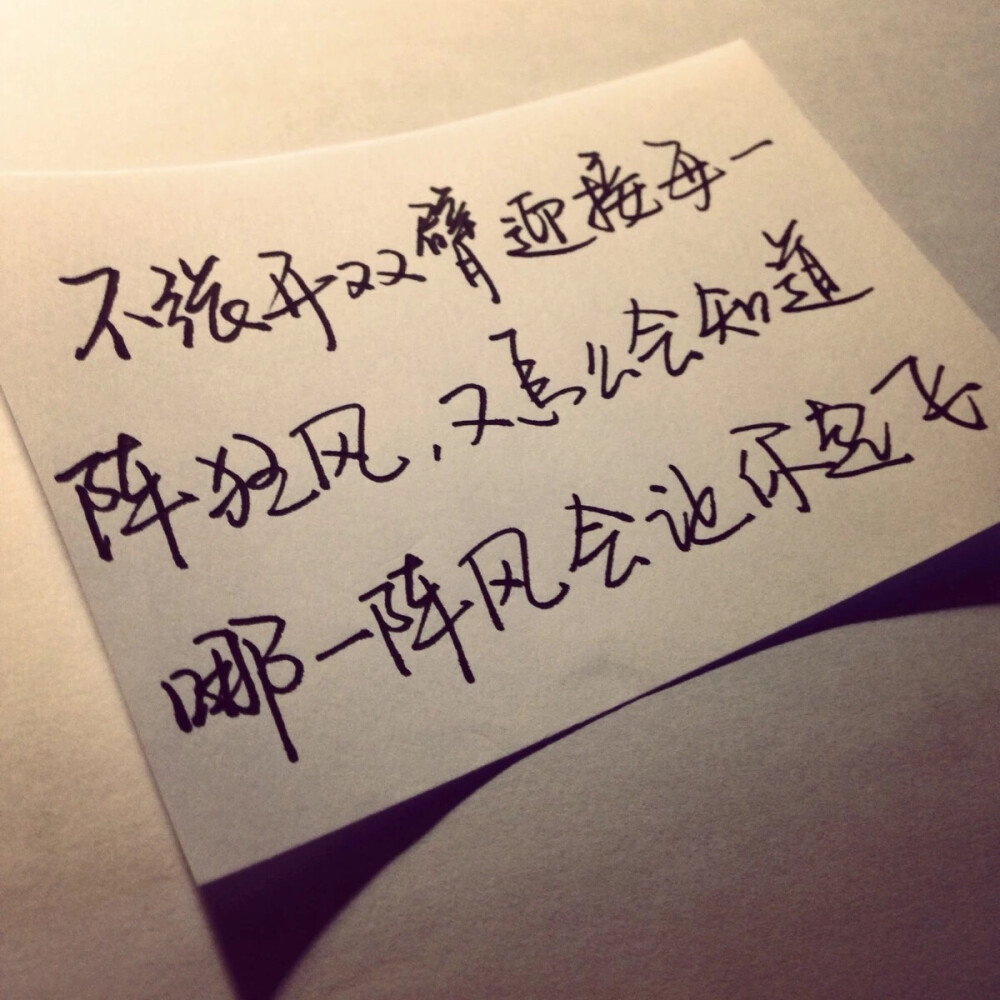 不张开双臂迎接再一
阵狂风，又怎么会知道
哪一阵风会让你起飞